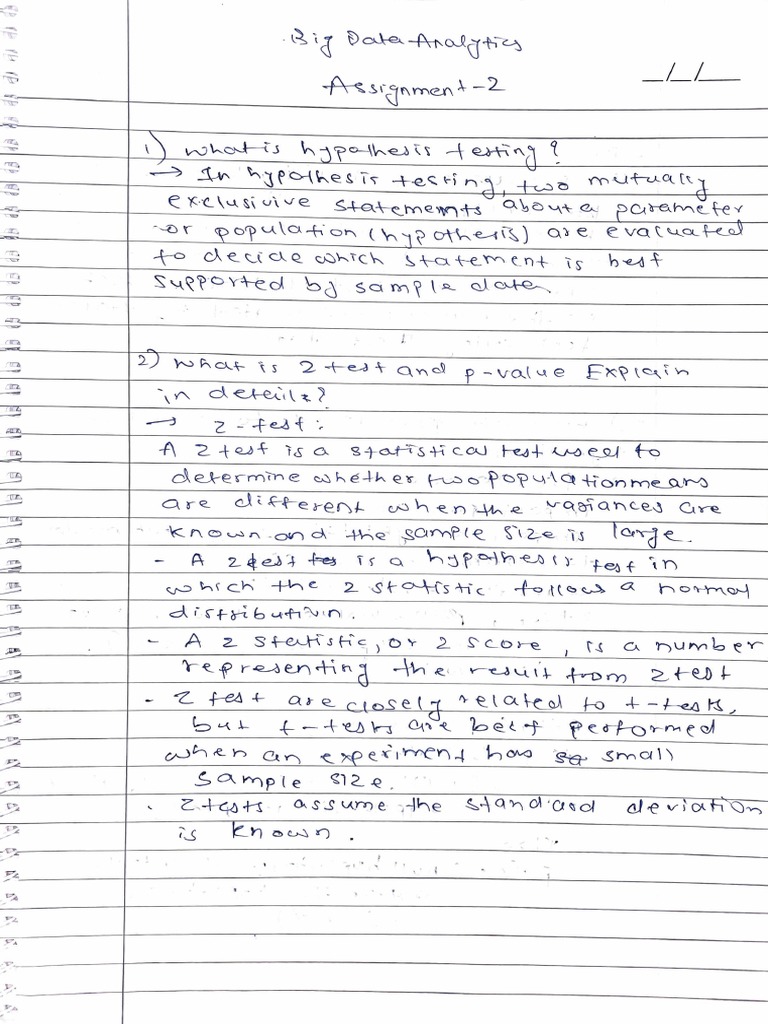 Big Data Analytics
_/_/_
Assignment-2
1) What is hypothesis testing?
→ In hypothesis testing, two mutually
exclusivive statements about a parameter
or population (hypothesis) are evaluated
to decide which statement is best
supported by sample data.
2) What is z test and p-value Explain
in details?
→ z-test:
A z test is a statistical test used to
determine whether two population means
are different when the variances are
known and the sample size is large.
- A z test is a hypothesis test in
which the z statistic follows a normal
distribution.
- A z statistic, or z score, is a number
representing the result from z test
- z test are closely related to t-tests,
but t-tests are best performed
when an experiment has small
sample size.
. z tests assume the standard deviation
is known.